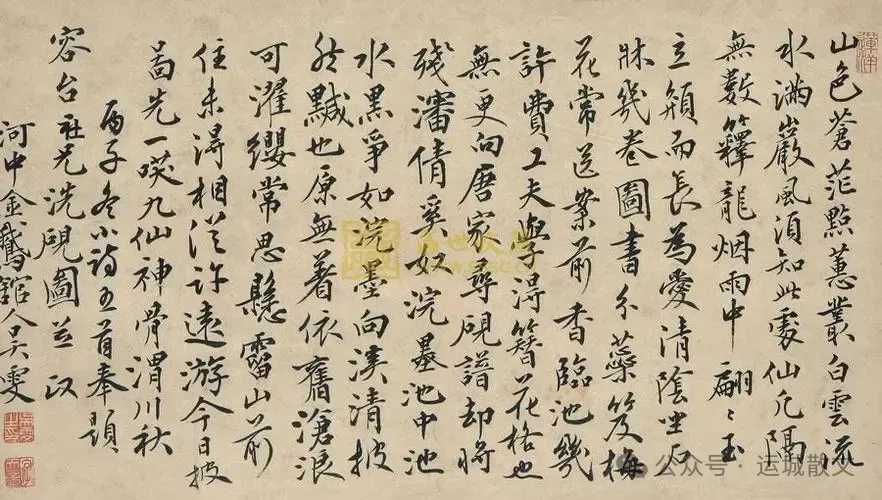 山色蒼茫點蕙叢白雲流
水滿巖風須知此處仙凡隔
無數籜龍烟雨中翩〻玉
立頎而長為愛清陰坐石
牀幾卷圖書分藥笈梅
花常送案前香臨池幾
許費工夫學得簪花格也
無更向唐家尋硯譜却將
殘瀋倩奚奴浣墨池中池
水黑爭如浣墨向溪清披
然黬也原無著依舊滄浪
可濯纓常思懸霤山前
住未得相從許遠游今日披
啚先一嘆九仙神骨渭川秋
丙子冬小詩五首奉題
容台社兄洗硯圖並政
河中金鵝館人吴雯
公众号 · 运城散文